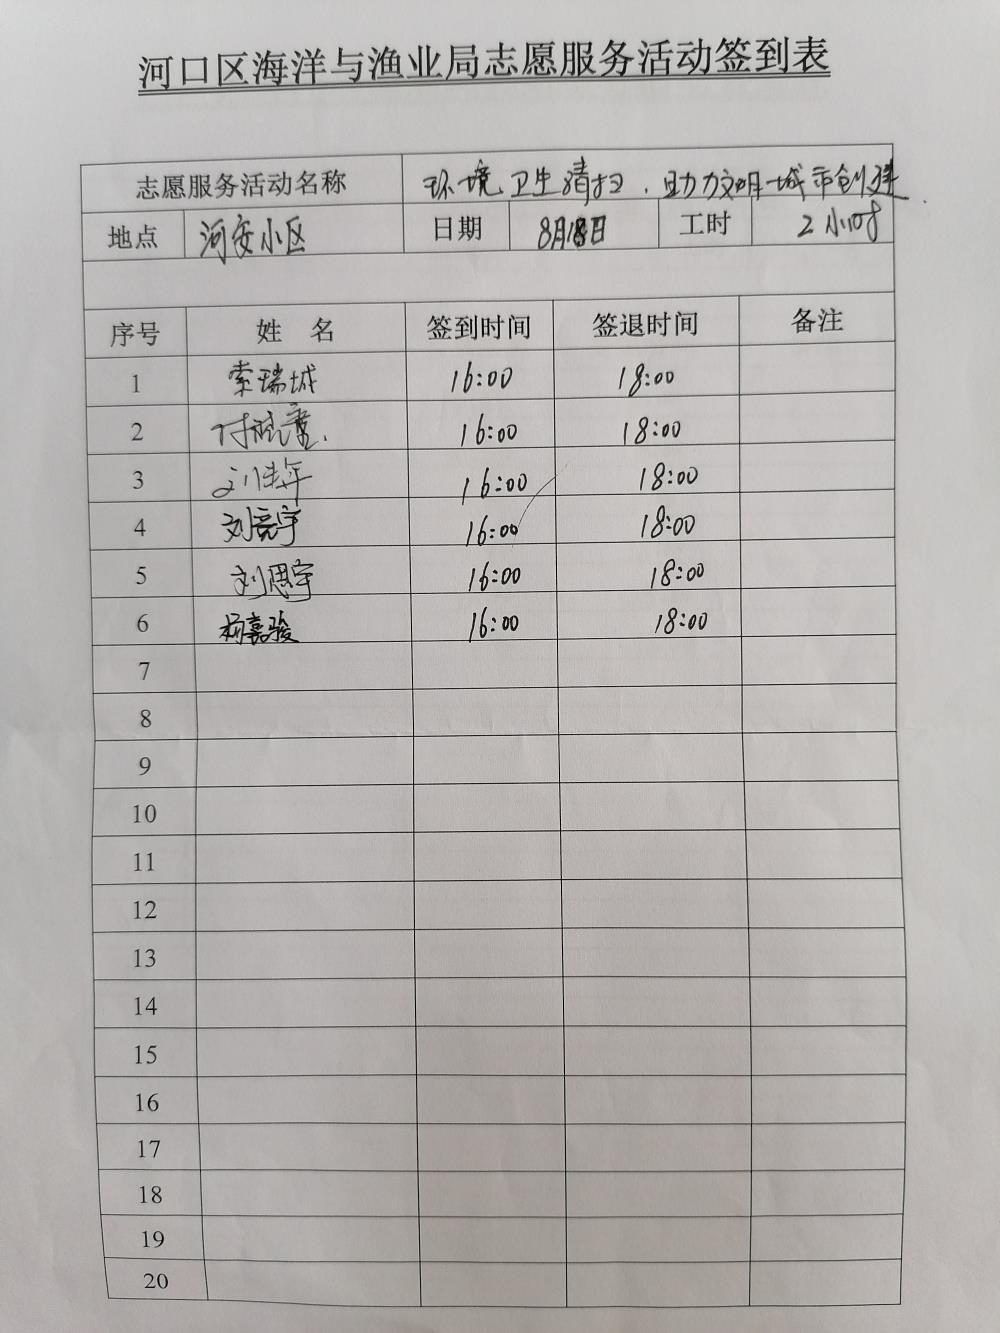 河口区海洋与渔业局志愿服务活动签到表
志愿服务活动名称 环境卫生清扫、助力文明城市创建
地点 河安小区 日期 8月18日 工时 2小时
序号 姓 名 签到时间 签退时间 备注
1 索瑞城 16:00 18:00
2 16:00 18:00
3 16:00 18:00
4 刘亮宇 16:00 18:00
5 刘思宇 16:00 18:00
6 杨嘉骏 16:00 18:00
7
8
9
10
11
12
13
14
15
16
17
18
19
20